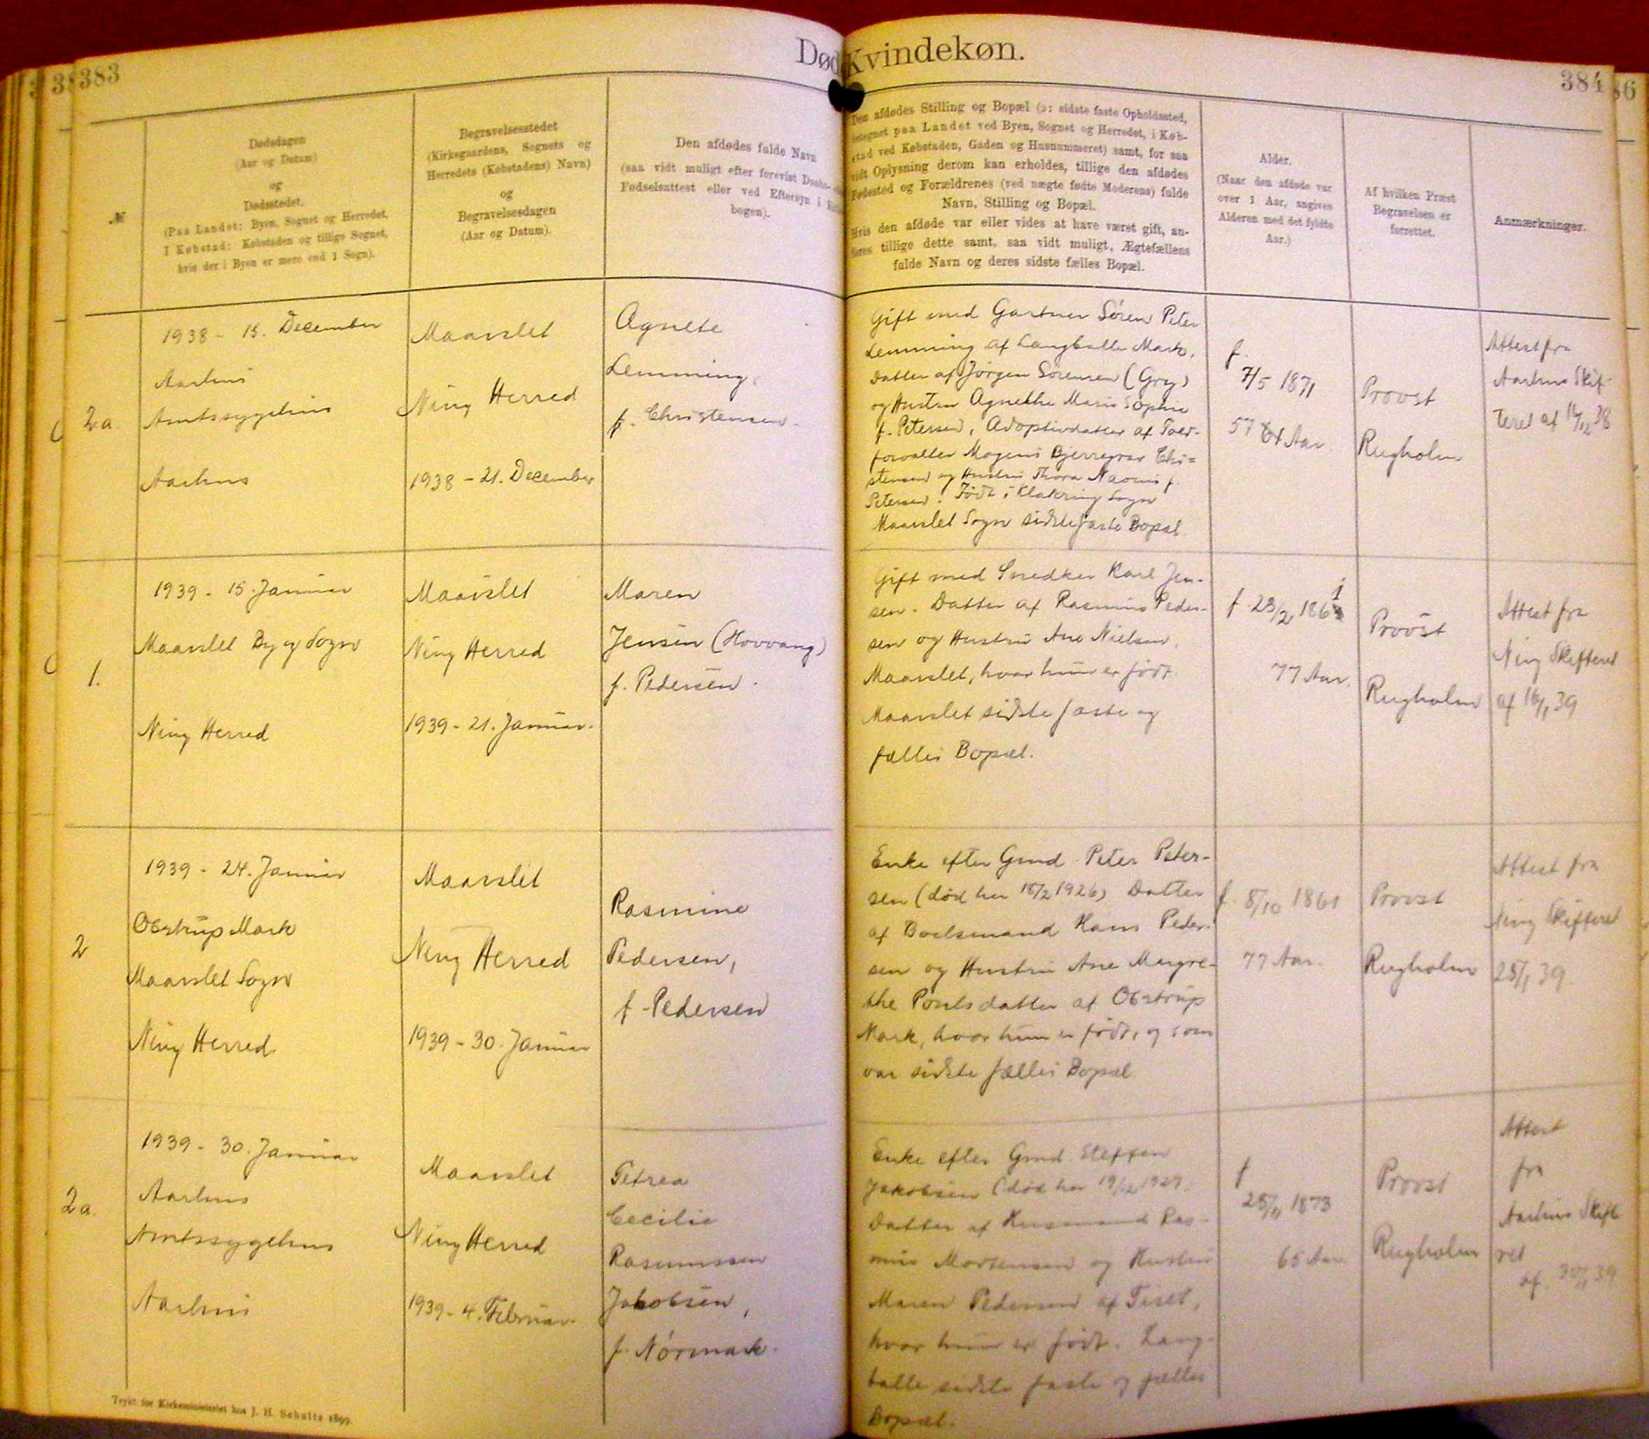 383
384
Død
Kvindekøn.
№
Dødsdagen
(Aar og Datum)
og
Dødsstedet.
(Paa Landet: Byen, Sognet og Herredet,
I Købstad: Købstaden og tillige Sognet,
hvis der i Byen er mere end 1 Sogn).
Begravelsesstedet
(Kirkegaardens, Sognets og
Herredets (Købstadens) Navn)
og
Begravelsesdagen
(Aar og Datum).
Den afdødes fulde Navn
(saa vidt muligt efter forevist
Fødselsattest eller ved Eftersyn i
bogen).
Den afdødes Stilling og Bopæl (ɔ: sidste faste Opholdssted,
betegnet paa Landet ved Byen, Sognet og Herredet, i Køb-
stad ved Købstaden, Gaden og Husnummeret) samt, for saa
vidt Oplysning derom kan erholdes, tillige den afdødes
Fødested og Forældrenes (ved uægte fødte Moderens) fulde
Navn, Stilling og Bopæl.
Hvis den afdøde var eller vides at have været gift, an-
føres tillige dette samt, saa vidt muligt, Ægtefællens
fulde Navn og deres sidste fælles Bopæl.
Alder.
(Naar den afdøde var
over 1 Aar, angives
Alderen med det fyldte
Aar.)
Af hvilken Præst
Begravelsen er
forrettet.
Anmærkninger.
2a.
1938 - 15. December
Aarhus
Amtssygehus
Aarhus
Maarslet
Ning Herred
1938 - 21. December
Agnete
Lemming,
f. Christensen.
Gift med Gartner Søren Peter
Lemming af Langballe Mark,
Datter af Jørgen Sørensen (Gry)
og Hustru Agnethe Marie Sophie
f. Petersen, Adoptivdatter af
forvalter Mogens Bjerregrav Chri-
stensen og Hustru Thora Naomi f.
Petersen. Født i Klakring Sogn
Maarslet Sogn sidste faste Bopæl
f.
7/5 1871
Aar.
Provst
Rugholm
Attest fra
Aarhus Skif-
teret af 16/12 38
1.
1939 - 15. Januar
Maarslet By og Sogn
Ning Herred
Maarslet
Ning Herred
1939 - 21. Januar.
Maren
Jensen (Hovvang)
f. Pedersen.
Gift med Snedker Karl Jen-
sen. Datter af Rasmus Peder-
sen og Hustru Ane Nielsen,
Maarslet, hvor hun er født.
Maarslet sidste faste og
fælles Bopæl.
f. 23/2 1861
77 Aar.
Provst
Rugholm
Attest fra
Ning Skifteret
af 16/1 39
2
1939 - 24. Januar
Obstrup Mark
Maarslet Sogn
Ning Herred
Maarslet
Ning Herred
1939 - 30. Januar
Rasmine
Pedersen,
f. Pedersen
Enke efter Gmd. Peter Peter-
sen (død her 18/2 1926) Datter
af Boelsmand Hans Peder-
sen og Hustru Ane Margre-
the Poulsdatter af Obstrup
Mark, hvor hun er født, og som
var sidste fælles Bopæl
f. 8/10 1861
77 Aar.
Provst
Rugholm
Attest fra
Ning Skifteret
25/1 39.
2a.
1939 - 30. Januar
Aarhus
Amtssygehus
Aarhus
Maarslet
Ning Herred
1939 - 4. Februar.
Petrea
Cecilie
Rasmussen
Jakobsen,
f. Nórmark.
Enke efter Gmd. Steffen
Jakobsen (død her 19/12 1927.
Datter af Husmand Ras-
mus Mortensen og Hustru
Maren Pedersen af Tiset,
hvor hun er født. Lang-
balle sidste faste og fælles
Bopæl.
f
25/11 1873
65 Aar.
Provst
Rugholm
Attest
fra
Aarhus Skifte
ret
af 30/1 39
Trykt for Kirkeministeriet hos J. H. Schultz 1899.